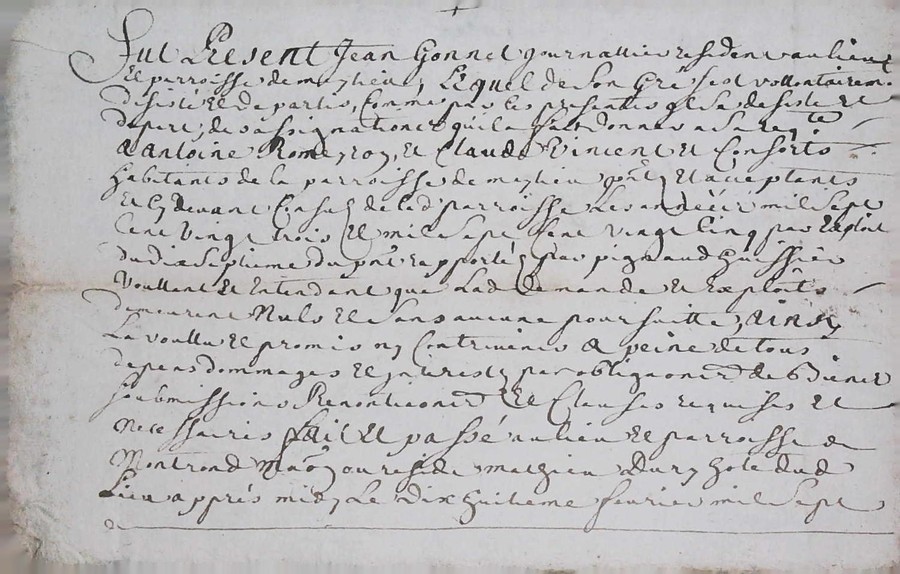 Fut Present Jean Gonnet journallier resident au lieu
et parroisse de meylieu, Lequel de son Gré est vollontairem
desisté et departi, comme par les presentes il se desiste et
depert, de l'assignation qu'il a fait donner a sa reqte
a antoine Romeyron, et Claude Vincent et Consorts
habitants de la parroisse de meylieu pnts et acceptants
et cy devant Consuls de lad parroisse les années mil sept
Cent Vingt trois et mil sept Cent Vingt Cinq par Exploit
du dixseptieme du pnt rapporté par pignaud huissier
Voullant et Entendant que Lad demande et Exploits
demeurent Nuls et sans aucune poursuitte, ainsy
La voullu et promis ny Contrevenir a peine de tous
depens dommages et interests par obligaon de biens
soubmissions Renontiaons et Clauses requises et
Necessaires fait et passé au lieu et parroisse de
Montrond maison ou reside mathieu Dury hote dud
Lieu appres midy Le dix huitieme feurier mil sept